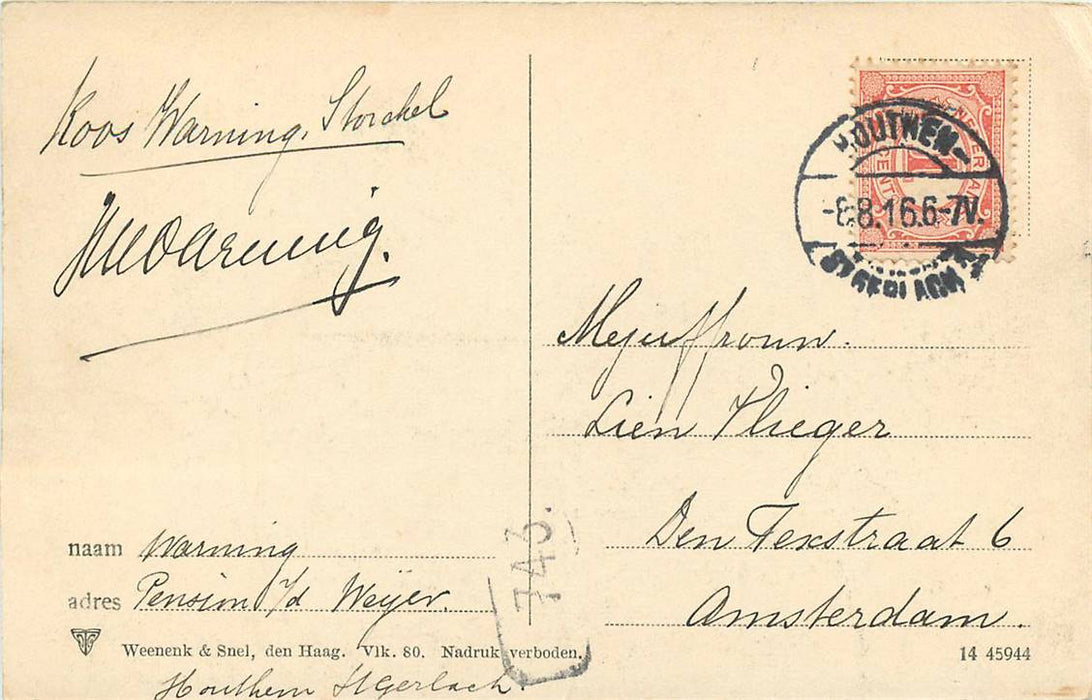 Koos Warning. Storchel
JWWarning.
NEDERLAND
CENT
HOUTHEM-
-8.8.16.6-7V.
ST GERLACH
Mejuffrouw.
Lien Vlieger
Den Texstraat 6
Amsterdam.
743.
naam Warning
adres Pension i/d Weijer.
Weenenk & Snel, den Haag. Vlk. 80. Nadruk verboden.
14 45944
Houthem St Gerlach.